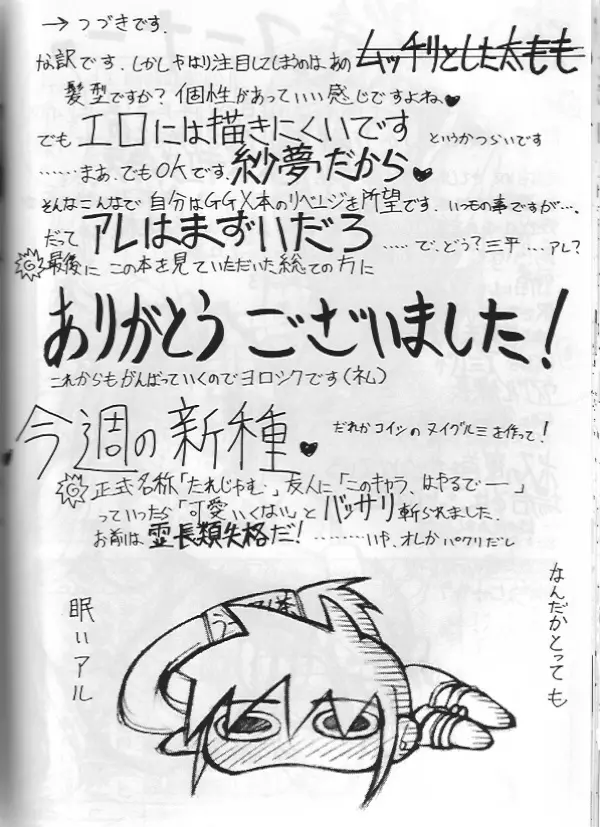 →つづきです.
な訳です.しかしやはり注目してしまうのは、あの ムッチリとした太もも
髪型ですか？個性があっていい感じですよね、♥
でも エロには描きにくいです というかつらいです
……まあ、でもOKです、紗夢だから♥
そんなこんなで 自分はGGX本のリベンジを所望です. いつもの事ですが…、
だって アレはまずいだろ …… で、どう？三平 … アレ？
最後に この本を見ていただいた総ての方に
ありがとう ございました！
これからもがんばっていくのでヨロシクです(礼)
今週の新種♥
だれかコイツのヌイグルミを作って！
正式名称「たれじゃむ.」友人に「このキャラ、はやるでー」
っていったら「可愛いくない」とバッサリ斬られました.
お前は霊長類失格だ！………いや、オレがパクリだし
なんだかとっても
眠いアル